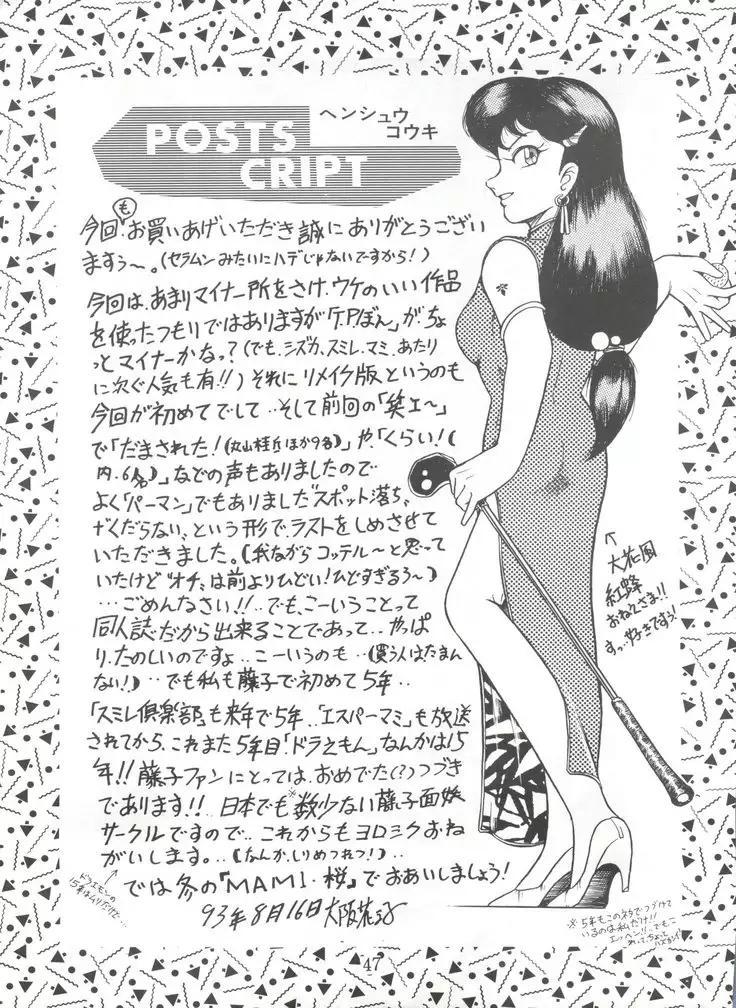 POSTS
CRIPT
ヘンシュウ
コウキ
今回もお買いあげいただき誠にありがとうござい
ますぅ〜。(セラムンみたいにハデじゃないですから!)
今回は、あまりマイナー所をさけ、ウケのいい作品
を使ったつもりではありますが「T.Pぼん」が、ちょ
っとマイナーかなっ?(でも、シズカ、スミレ、マミ、あたり
に次ぐ人気も有!!)それにリメイク版というのも
今回が初めてでして‥そして前回の「笑ェ〜」
で「だまされた!(丸山桂丘ほか9名)」や「くらい!(
内.6名)」などの声もありましたので
よく「パーマン」でもありました"スポット落ち、
でくだらない、という形で、ラストをしめさせて
いただきました。(我ながらコッテル〜と思って
いたけど"オチ、は前よりひどい!ひどすぎるぅ〜)
…ごめんなさい!!‥でも、こーいうことって
同人誌だから出来ることであって‥やっぱ
り、たのしいのですよ‥こーいうのも‥(買う人はたまん
ない!)‥でも私も藤子で初めて5年‥
「スミレ倶楽部」も来年で5年‥「エスパーマミ」も放送
されてから、これまた5年目!「ドラえもん」なんかは15
年!!藤子ファンにとっては、おめでた(?)つづき
であります!!‥日本でも※数少ない藤子
サークルですので‥これからもヨロミクおね
がいします。‥(なんか、しりめつれつ!)‥
では冬の「MAMI・桜」でおあいしましょう!
93年8月16日
↑
大花風
紅蜂
おねえさま!!
すっ‥好きですぅ!
※5年もこのネタでつづけて
いるのは私だけ!!
47